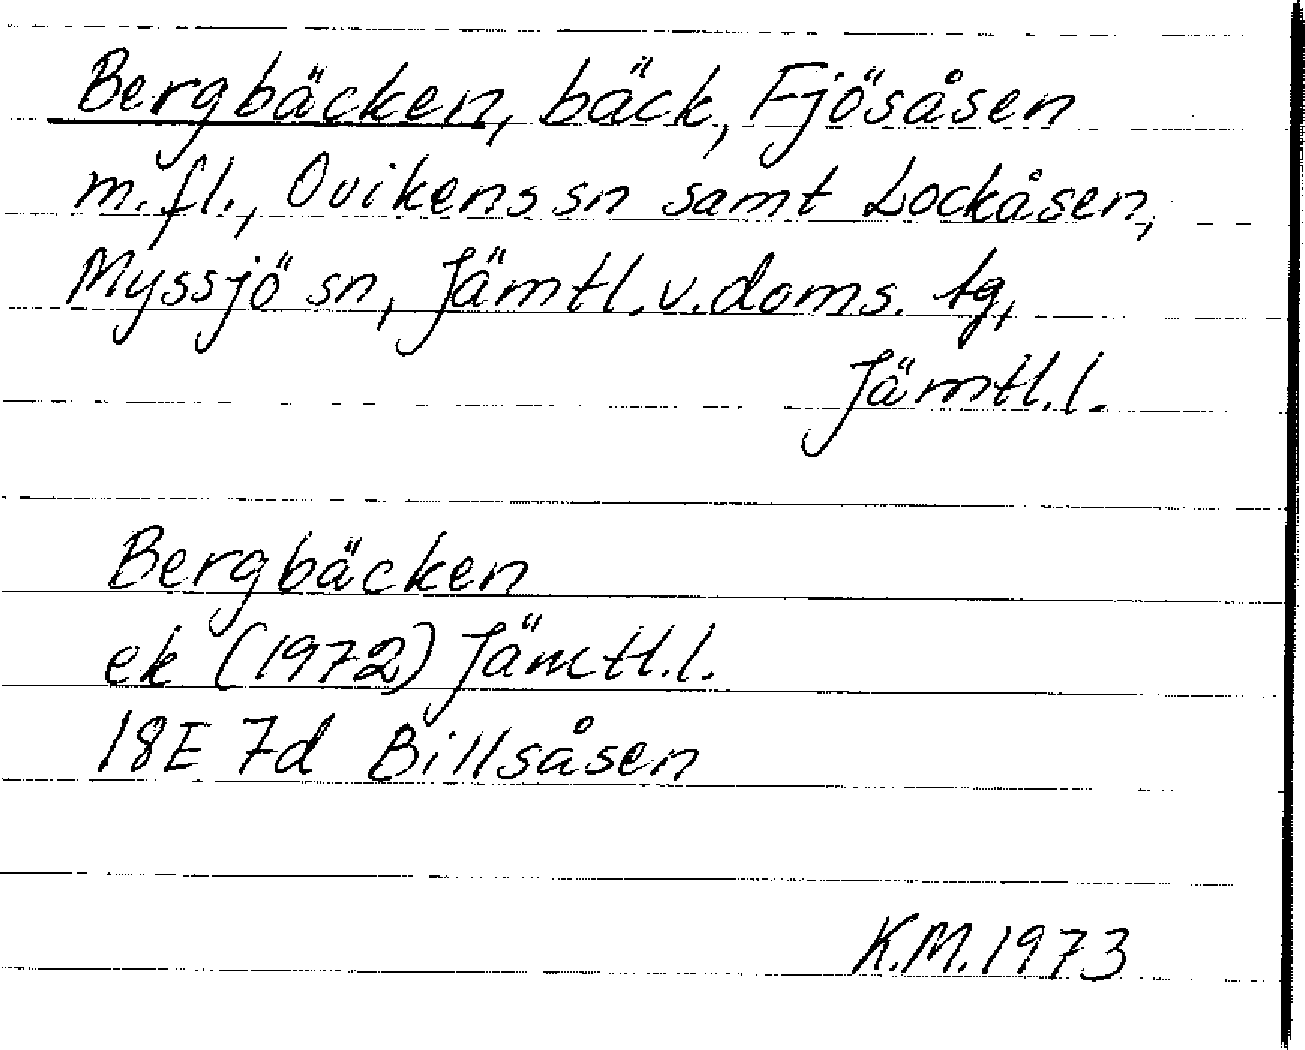 Bergbäcken, bäck, Fjösåsen
m.fl., Ovikens sn samt Lockåsen,
Myssjö sn, Jämtl.v.doms. tg,
Jämtl.l.
Bergbäcken
ek (1972) Jämtl.l.
18E 7d Billsåsen
K.M.1973